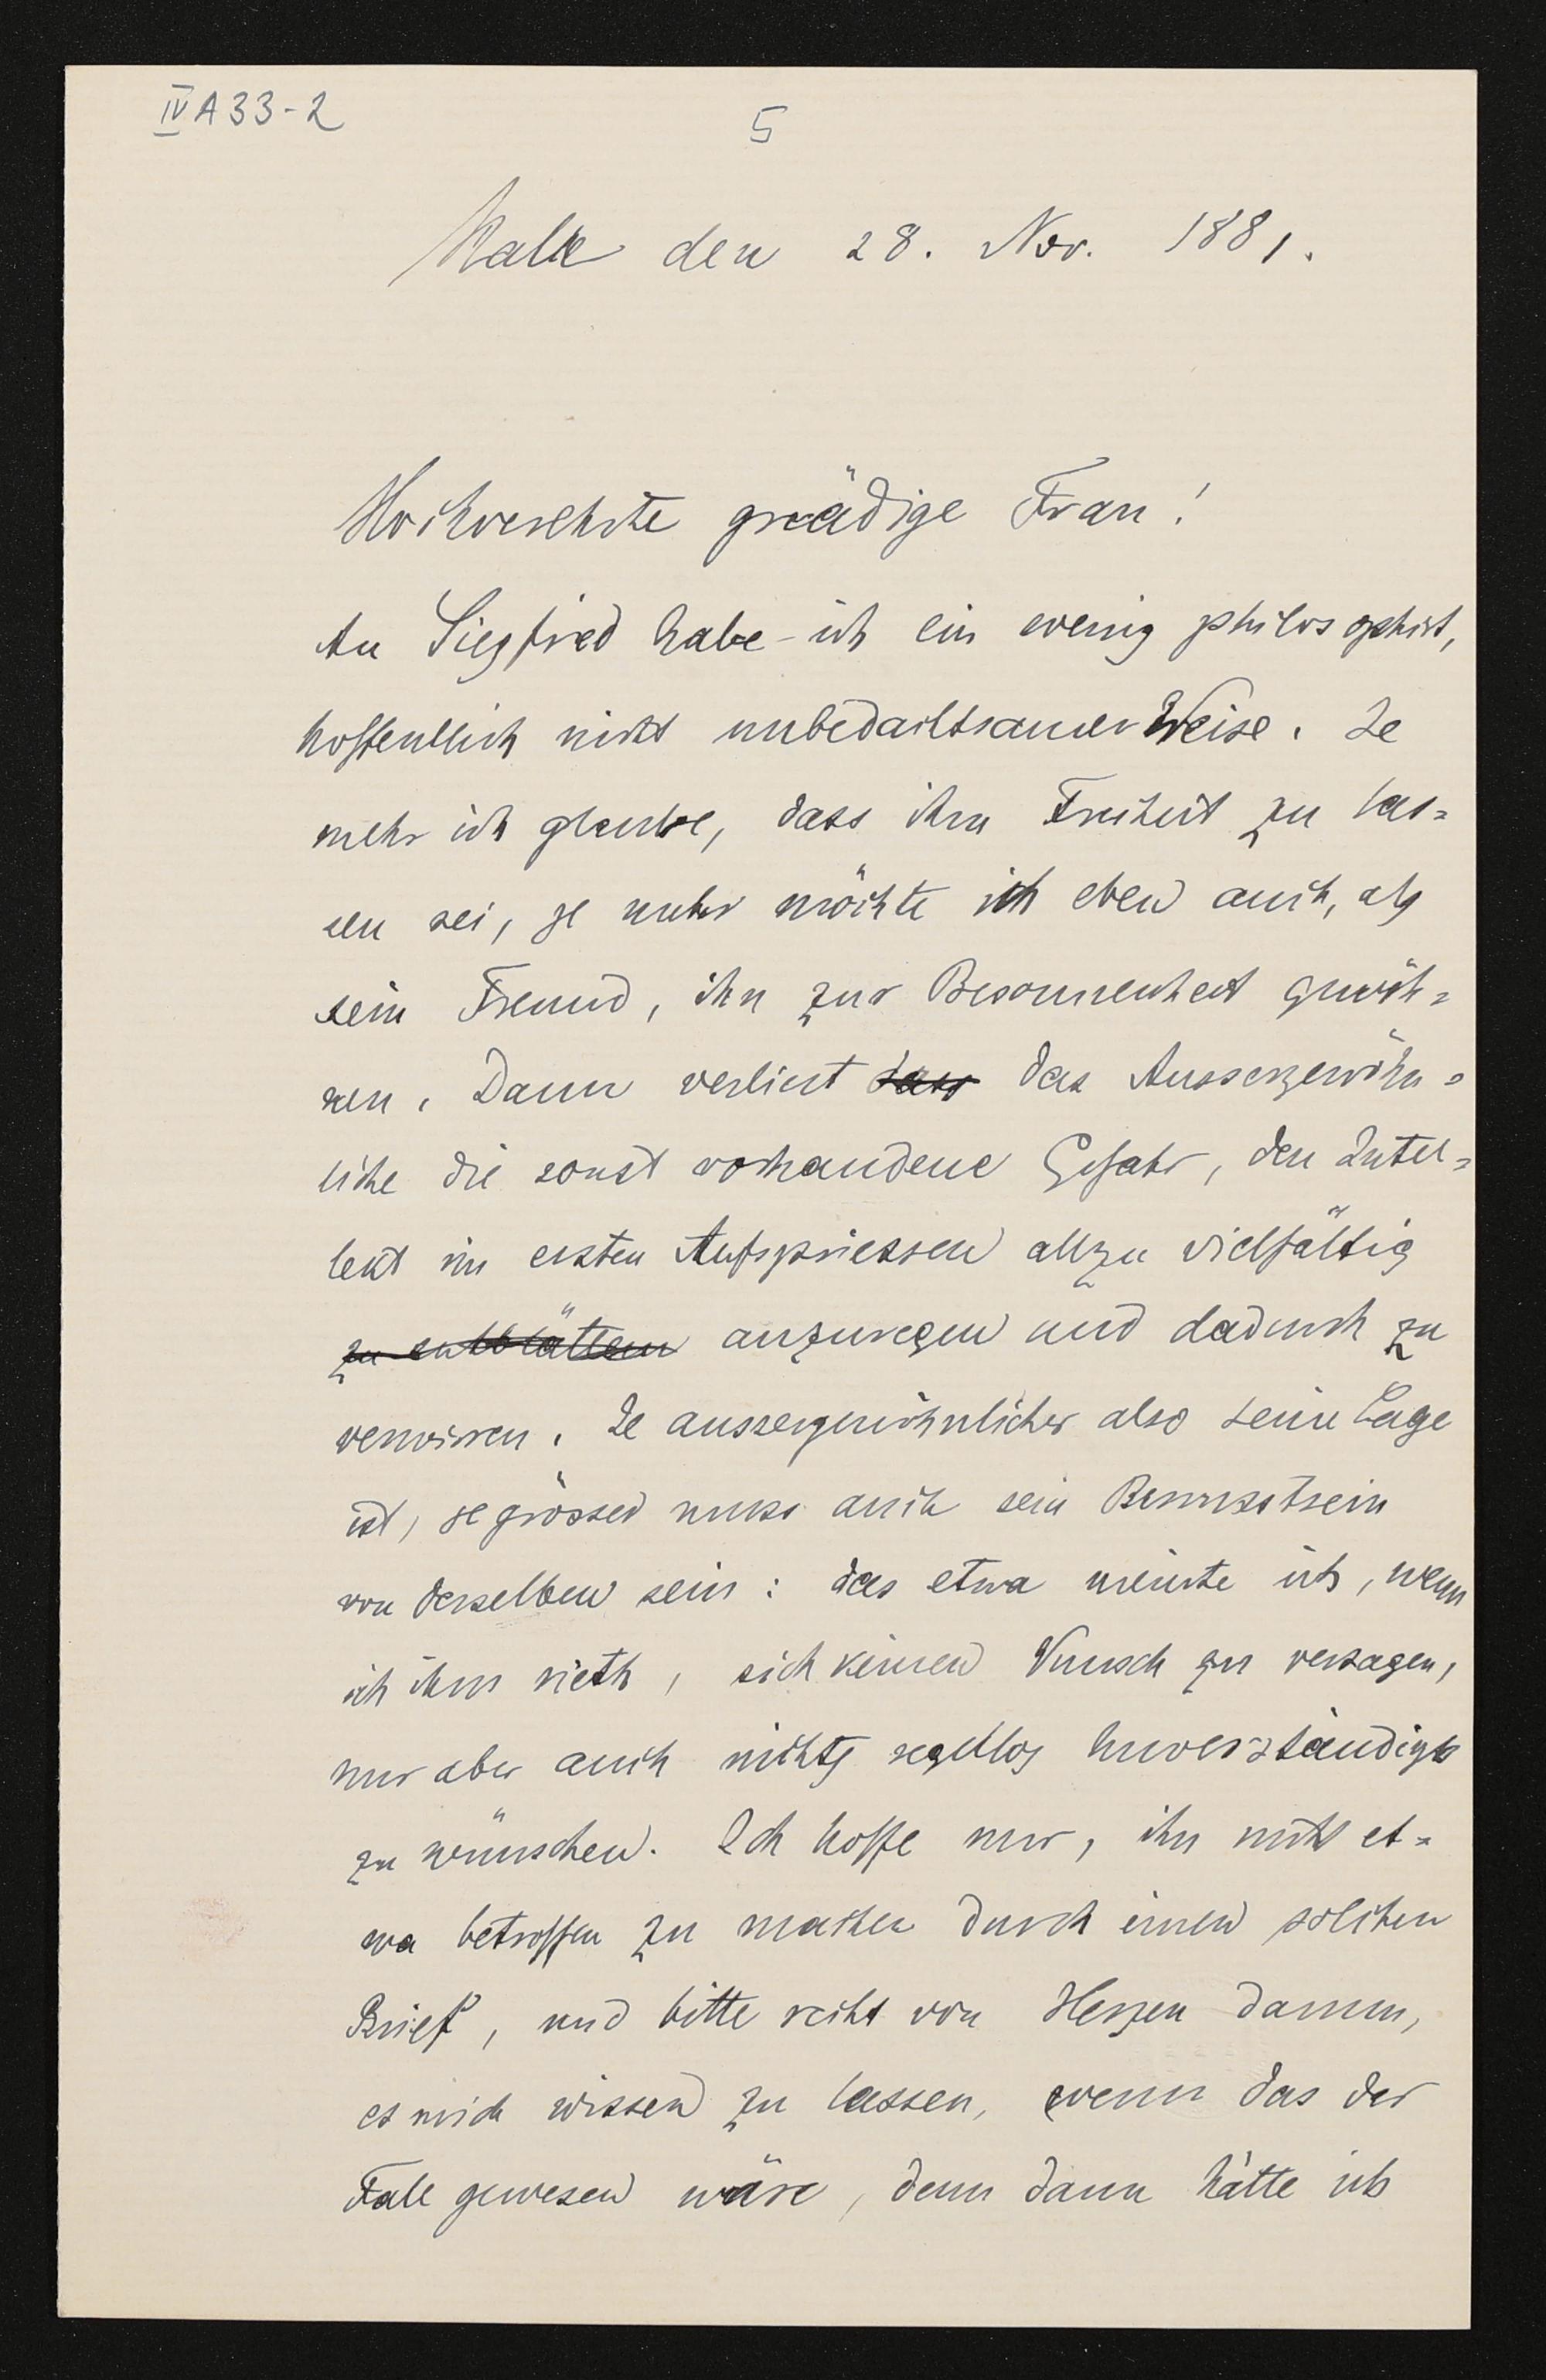 IV A 33-2
5
Halle den 28. Nov. 1881.
Hochverehrte gnädige Frau!
An Siegfried habe ich ein wenig philosophirt,
hoffentlich nicht unbedachtsamer Weise. Je
mehr ich glaube, dass ihm Freiheit zu las=
sen sei, je mehr möchte ich eben auch, als
sein Freund, ihn zur Besonnenheit gewöh=
nen. Dann verliert dass das Aussergewöhn=
liche die sonst vorhandene Gefahr, den Intel=
lect im ersten Aufspriessen allzu vielfältig
zu entblättern anzuregen und dadurch zu
verwirren. Je aussergewöhnlicher also seine Lage
ist, je grösser muss auch sein Bewusstsein
von derselben sein: das etwa meinte ich, wenn
ich ihm rieth, sich keinen Wunsch zu versagen,
nur aber auch nichts regellos Unverständiges
zu wünschen. Ich hoffe nur, ihn nicht et=
wa betroffen zu machen durch einen solchen
Brief, und bitte recht von Herzen darum,
es mich wissen zu lassen, wenn das der
Fall gewesen wäre, denn dann hätte ich